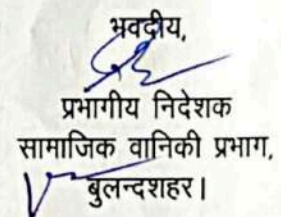 भवदीय,
प्रभागीय निदेशक
सामाजिक वानिकी प्रभाग,
बुलन्दशहर।